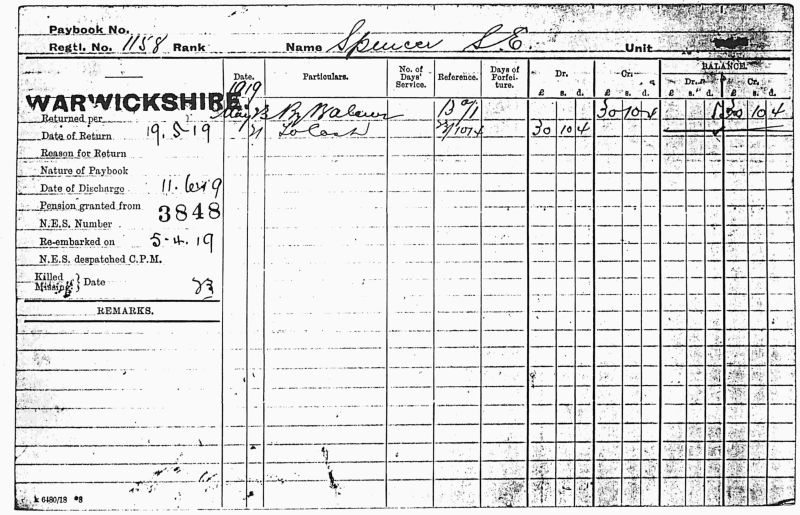 Paybook No.
Regtl. No. 1158 Rank Name Spencer S.E. Unit
Date. Particulars. No. of Days' Service. Reference. Days of Forfeiture. Dr. Cr. BALANCE.
£ s. d. £ s. d. Dr. £ s. d. Cr. £ s. d.
1919
WARWICKSHIRE.
Returned per May 13 By Balance 30 10 4 30 10 4
Date of Return 19.5.19 To Cash 30 10 4
Reason for Return
Nature of Paybook
Date of Discharge
Pension granted from
N.E.S. Number 3848
Re-embarked on 5.4.19
N.E.S. despatched C.P.M.
Killed
Missing } Date
REMARKS.
k 6480/18 *8